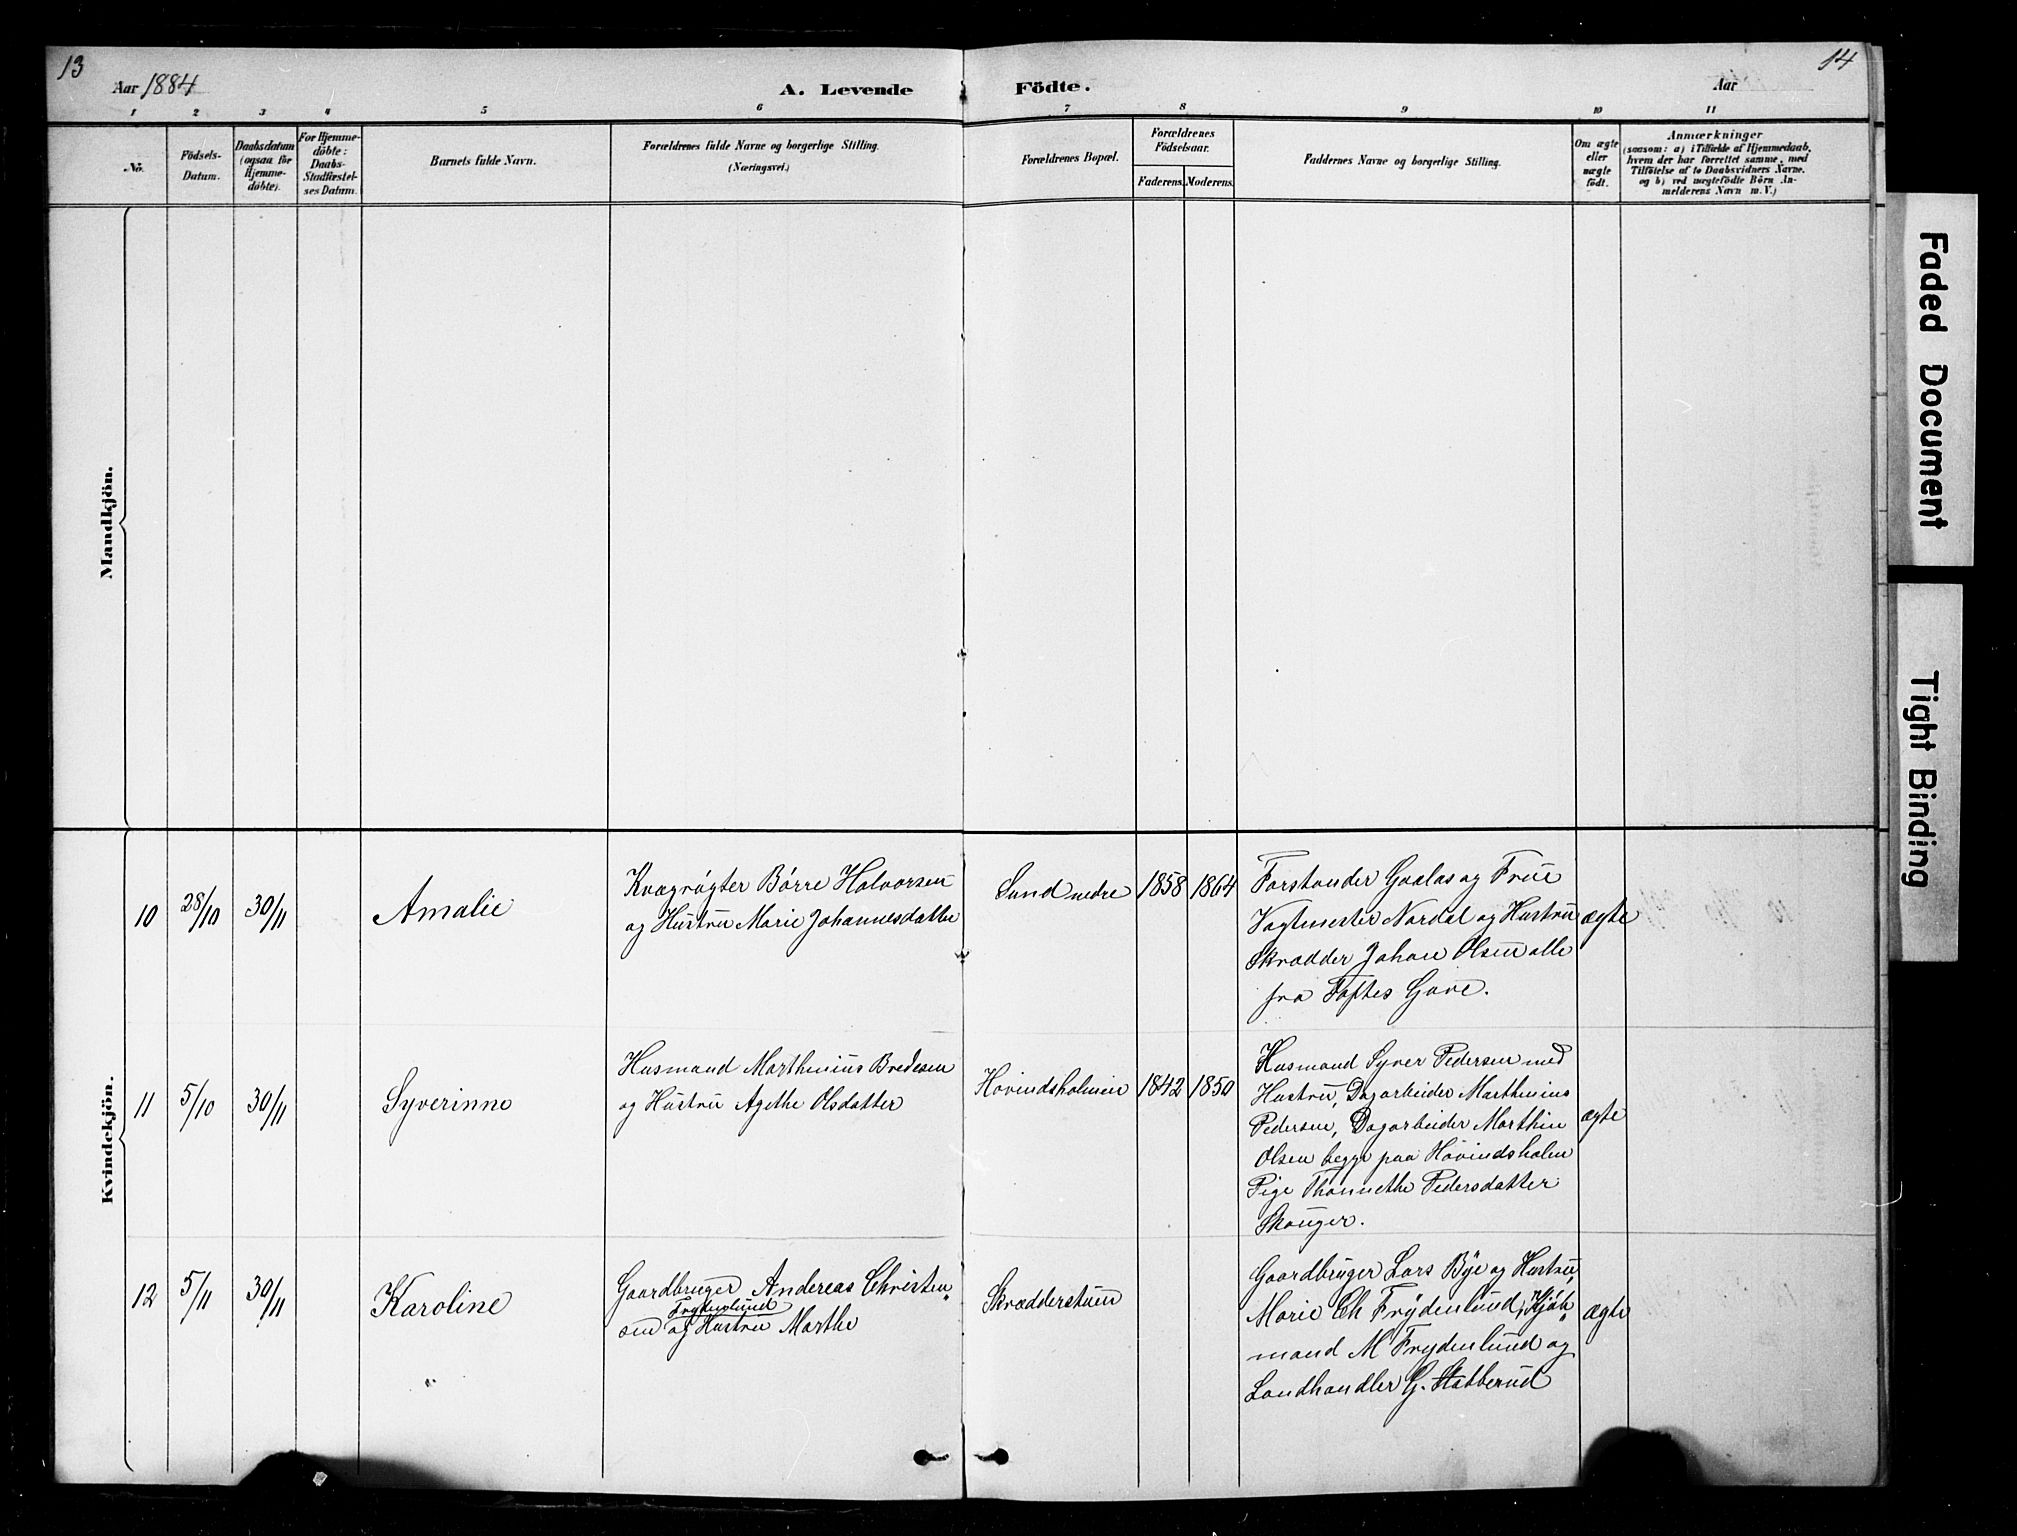 13
14
Aar 1884
A. Levende Födte.
Aar
1
2
3
4
5
6
7
8
9
10
11
No.
Födsels-
Datum.
Daabsdatum
(ogsaa för
Hjemme-
döbte).
For Hjemme-
döbte:
Daabs-
Stadfæstel-
ses Datum.
Barnets fulde Navn.
Forældrenes fulde Navne og borgerlige Stilling.
(Næringsvei.)
Forældrenes Bopæl.
Forældrenes
Födselsaar.
Faderens.
Moderens.
Faddernes Navne og borgerlige Stilling.
Om ægte
eller
uægte
födt.
Anmærkninger
(saasom: a) i Tilfælde af Hjemmedaab,
hvem der har forrettet samme, med
Tilföielse af to Daabsvidners Navne.
og b) ved uægtefödte Börn An-
melderens Navn m. V.)
Mandkjön.
Kvindekjön.
10
28/10
30/11
Amalie
Kvægrögter Börre Halvorsen
og Hustru Marie Johannesdatter
Sund nedre
1858
1864
Forstander Gaalas og Frue
Vagtmester Nordal og Hustru
Skrædder Johan Olsen alle
fra Toftes Gave.
ægte
11
5/10
30/11
Syverinne
Husmand Marthinius Bredesen
og Hustru Agethe Olsdatter
Hovindsholmen
1842
1850
Husmand Syver Pedersen med
Hustru, Dagarbeider Marthinius
Pedersen, Dagarbeider Marthin
Olsen begge paa Hovindsholm
Pige Thonnethe Pedersdatter
Skouger.
ægte
12
5/11
30/11
Karoline
Gaardbruger Andereas Christen„
Frydenlund
sen og Hustru Marthe
Skrædderstuen
Gaardbruger Lars Bye og Hustru,
Marie Ch Frydenlund, Kjöb„
mand M Frydenlund og
Landhandler G. Stabberud
ægte
Faded Document
Tight Binding